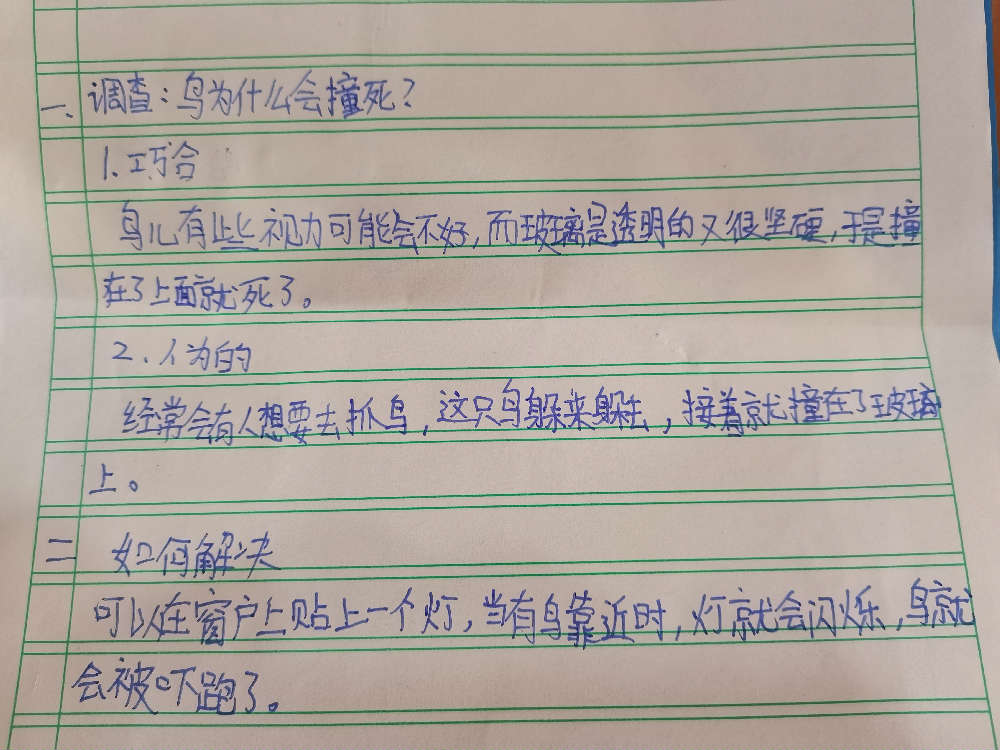 一、调查：鸟为什么会撞死？
1.巧合
鸟儿有些视力可能会不好，而玻璃是透明的又很坚硬，于是撞
在了上面就死了。
2.人为的
经常会有人想要去抓鸟，这只鸟躲来躲去，接着就撞在了玻璃
上。
二 如何解决
可以在窗户上贴上一个灯，当有鸟靠近时，灯就会闪烁，鸟就
会被吓跑了。